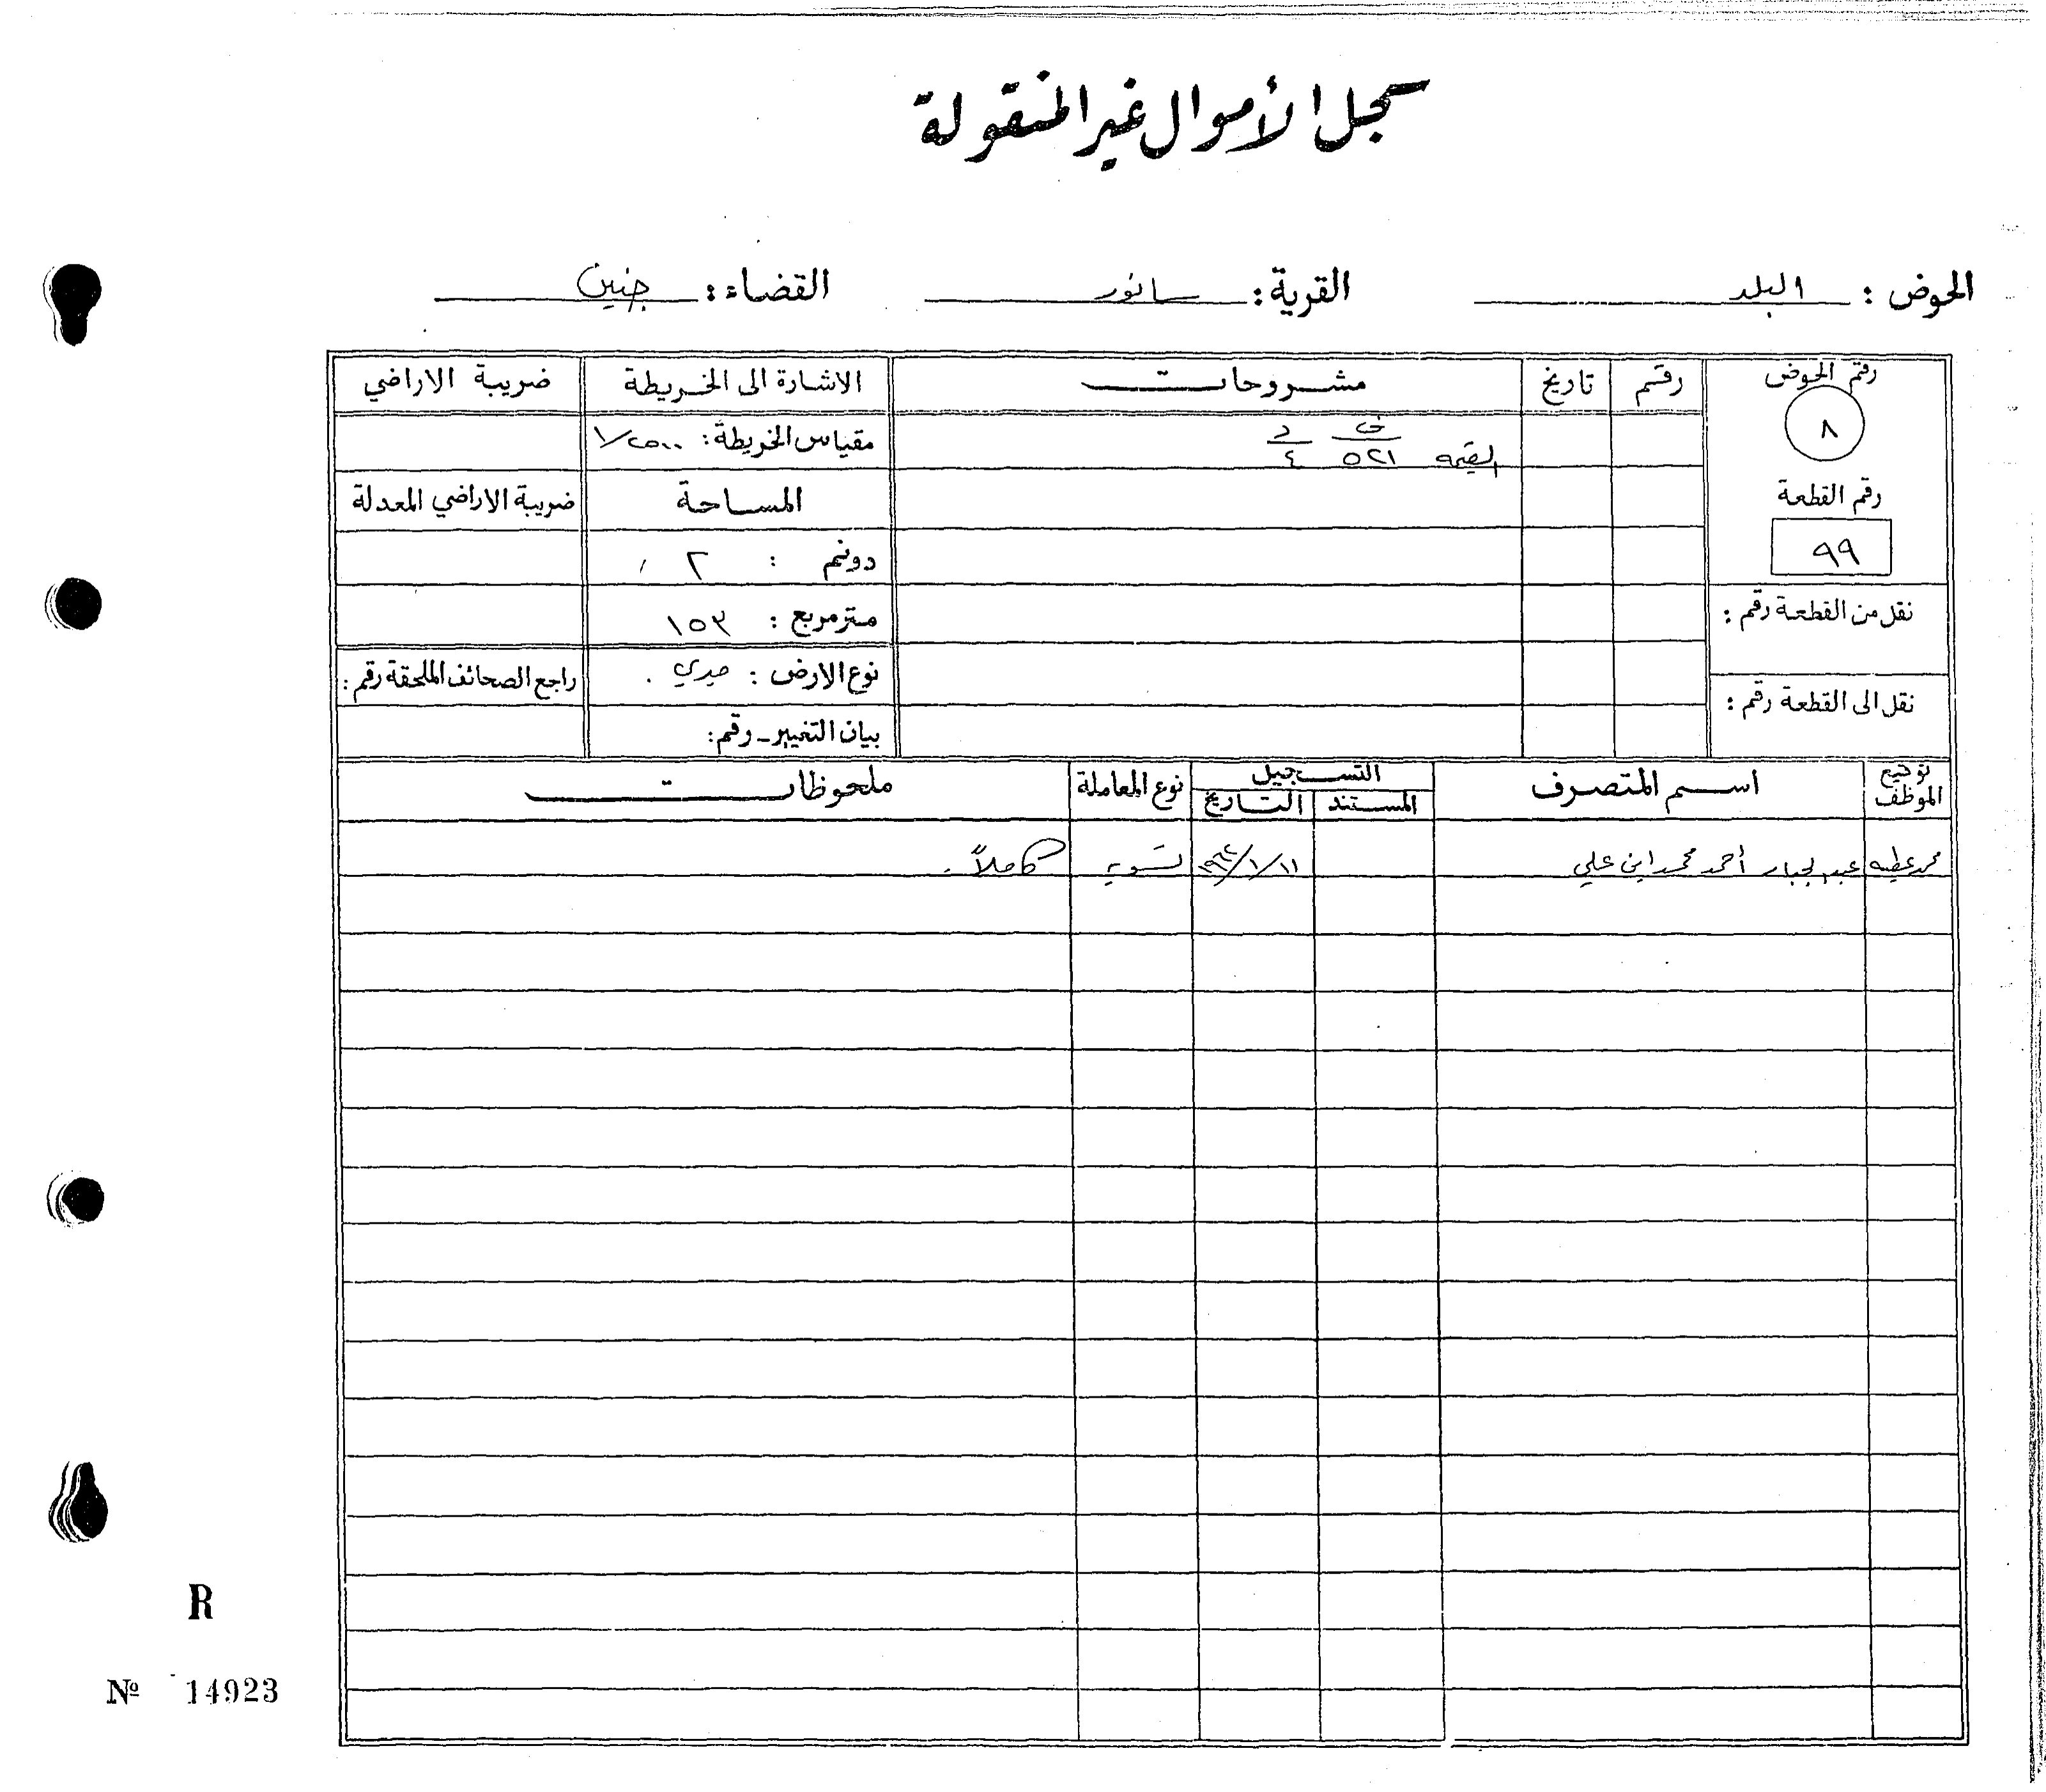 سجل الأموال غير المنقولة
الحوض : البلد القرية : سانور القضاء : جنين
رقم الحوض رقم تاريخ مشروحات الاشارة الى الخريطة ضريبة الاراضي
٨ القيمه ٥٢١ ٤ د مقياس الخريطة : ١/٢٥٠٠
رقم القطعة المساحة ضريبة الاراضي المعدلة
٩٩ دونم : ٢
نقل من القطعة رقم : متر مربع : ١٥٣
نوع الارض : ميري . راجع الصحائف الملحقة رقم :
نقل الى القطعة رقم : بيان التغيير - رقم :
توقيع الموظف اسم المتصرف التسجيل نوع المعاملة ملحوظات
المستند التاريخ
محمد عطيه عبد الجبار أحمد محمد ابن علي تسويه كاملاً .
R
Nº 14923